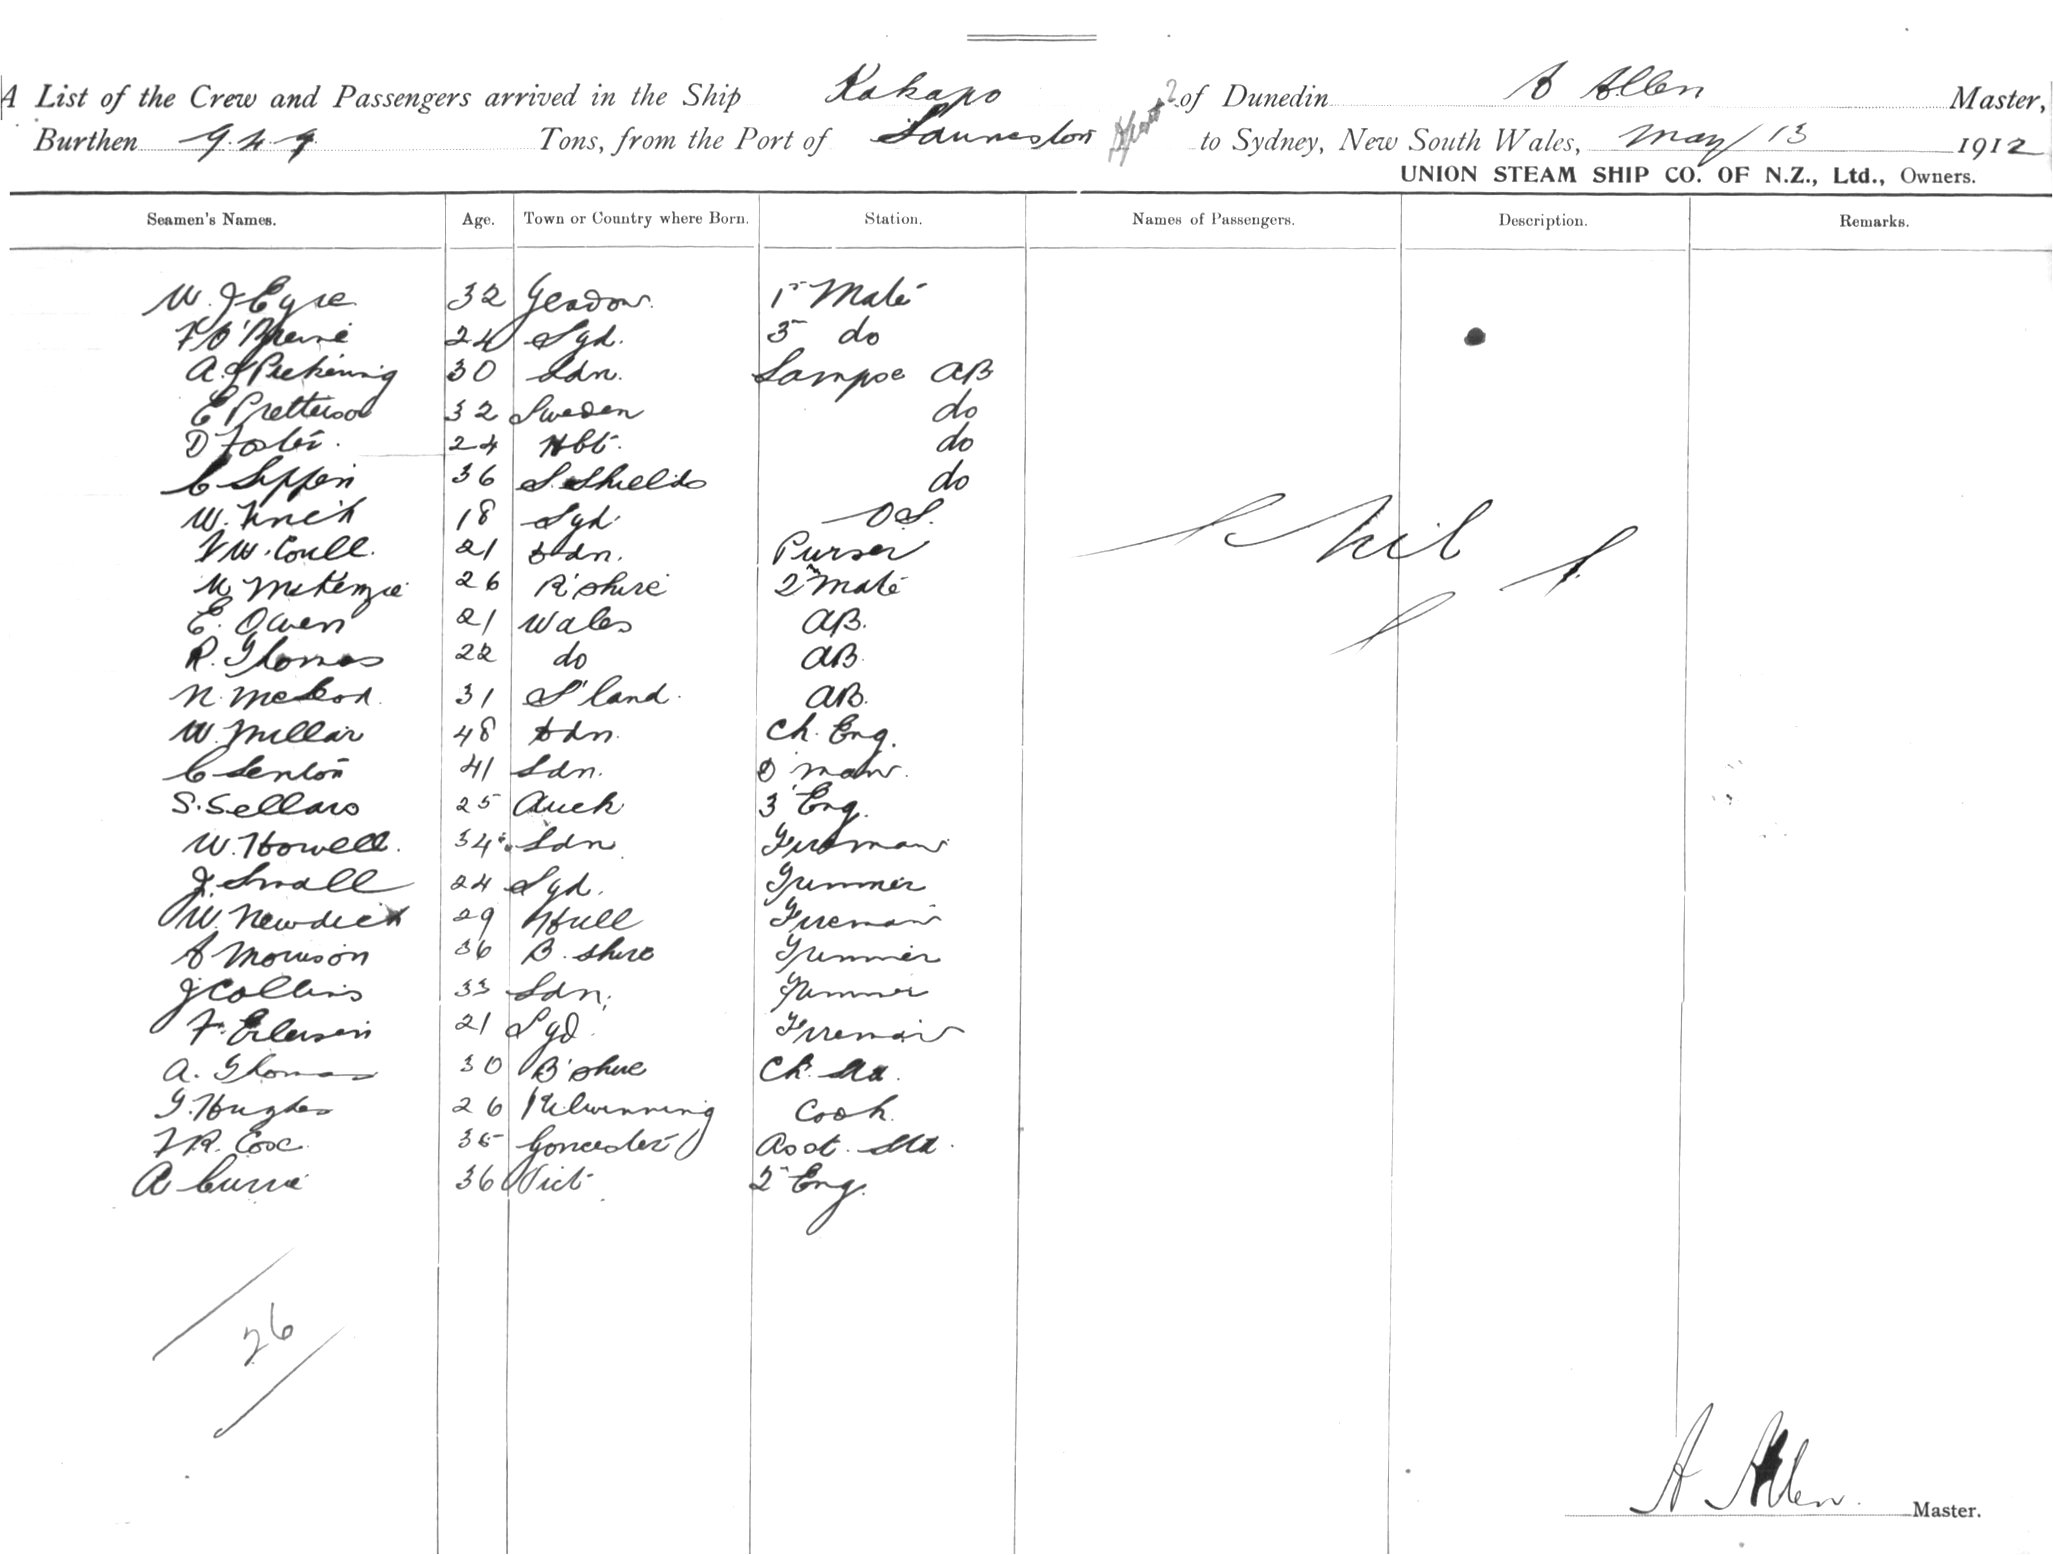 A List of the Crew and Passengers arrived in the Ship Kakapo of Dunedin A Allen Master,
Burthen 949 Tons, from the Port of Launceston to Sydney, New South Wales, May 13 1912
UNION STEAM SHIP CO. OF N.Z., Ltd., Owners.
Seamen's Names. Age. Town or Country where Born. Station. Names of Passengers. Description. Remarks.
W. J Eyre 32 1st Mate
24 Syd. 3 do
A. J Pickering 30 Ldn. Lamps AB
E Petterson 32 Sweden do
D Foster. 24 Hbt. do
C 36 S. Shields do
W. 18 Syd. O S.
F W. Coull. 21 Ddn. Purser
M McKenzie 26 R'shire 2 Mate
E. Owen 21 Wales AB.
R. Thomas 22 do AB
N. McLeod. 31 S'land. AB.
W. Millar 48 Ddn. Ch. Eng.
C Lenton 41 Ldn. D'man.
S. Sellars 25 Auck 3 Eng.
W. Howell. 34 Ldn Fireman
J. Small 24 Syd. Trimmer
W. Newdick 29 Hull Fireman
A Morrison 36 B. shire Trimmer
J Collins 33 Ldn. Trimmer
F. 21 Syd. Fireman
A. Thomas 30 B'shire Ch.
G. Hughes 26 Kilwinning Cook
F R. Cox 35 Asst.
A Currie 36 Vict. 2 Eng.
Nil
26
A Allen. Master.